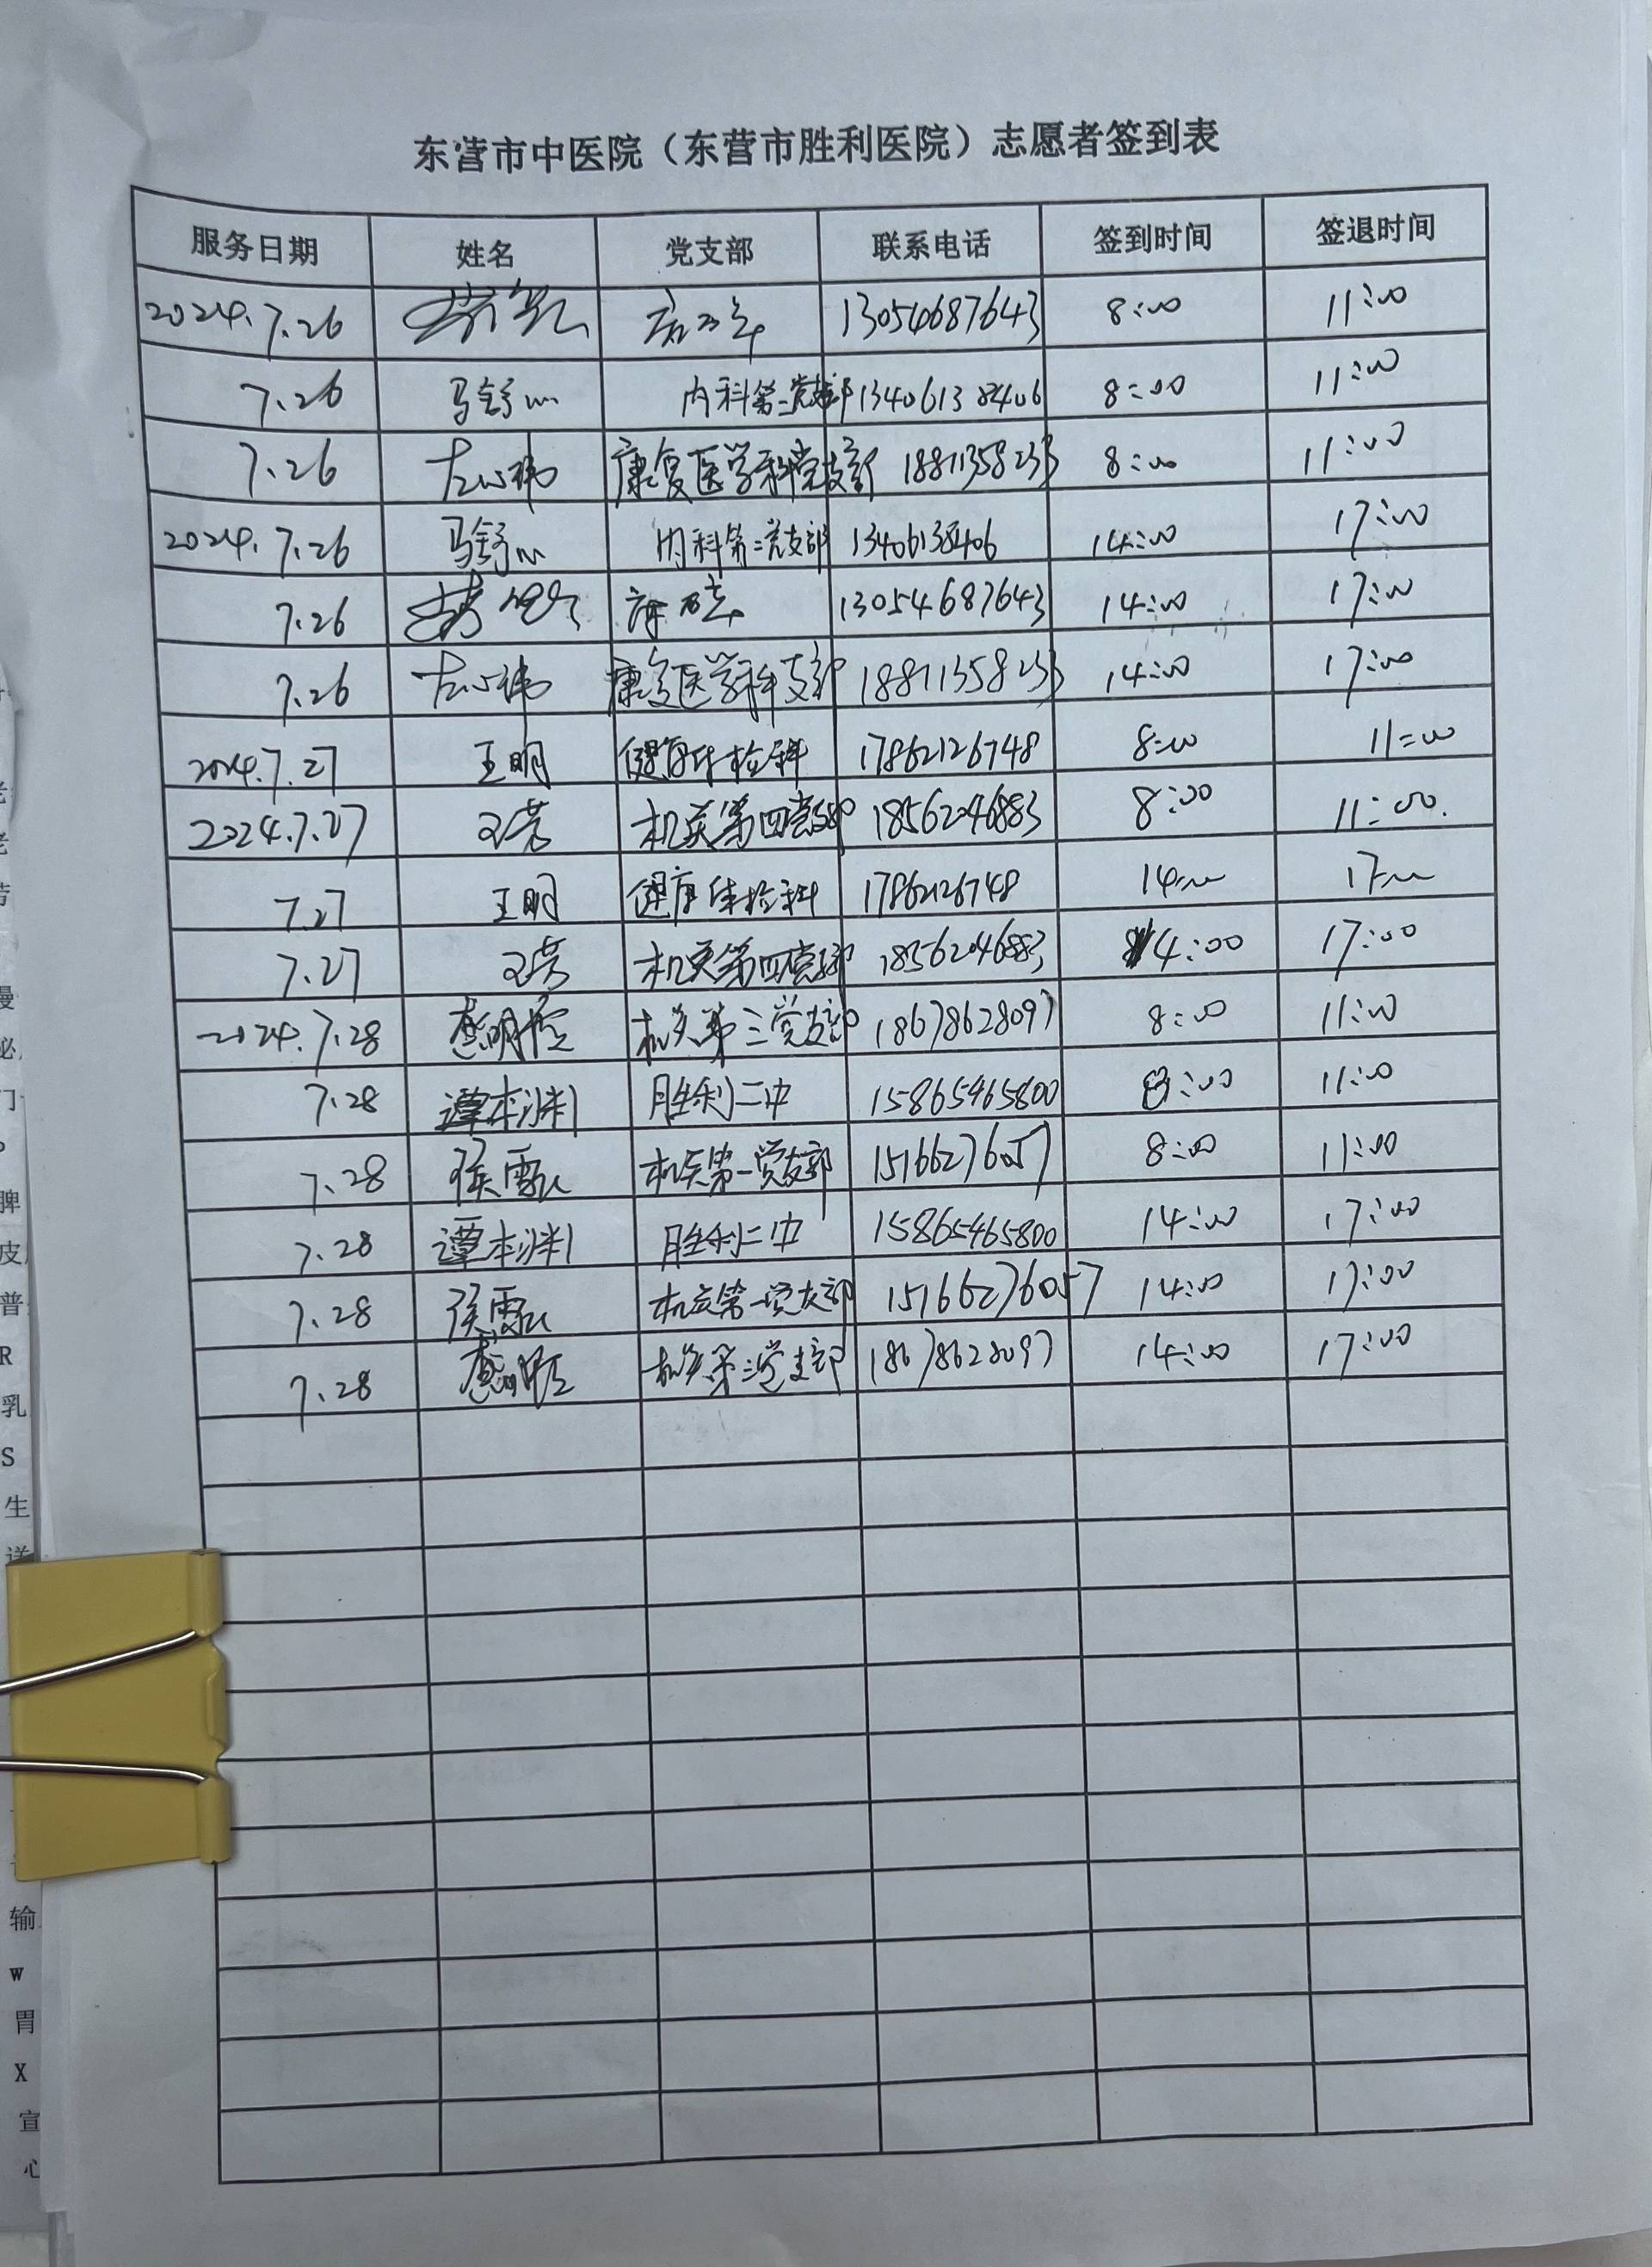 东营市中医院（东营市胜利医院）志愿者签到表
服务日期 姓名 党支部 联系电话 签到时间 签退时间
2024.7.26 13054687643 8:00 11:00
7.26 马舒心 内科第二党支部 13406138406 8:00 11:00
7.26 左心祎 康复医学科党支部 18811358233 8:00 11:00
2024.7.26 马舒心 内科第二党支部 13406138406 14:00 17:00
7.26 13054687643 14:00 17:00
7.26 左心祎 康复医学科支部 18811358233 14:00 17:00
2024.7.27 王明 健康体检科 17862126748 8:00 11:00
2024.7.27 机关第四党支部 18562046883 8:00 11:00.
7.27 王明 健康体检科 17862126748 14:00 17:00
7.27 机关第四党支部 18562046883 14:00 17:00
2024.7.28 机关第三党支部 18678628097 8:00 11:00
7.28 谭本渊 胜利二中 15865465800 8:00 11:00
7.28 侯雪 机关第一党支部 15166276057 8:00 11:00
7.28 谭本渊 胜利二中 15865465800 14:00 17:00
7.28 侯雪 机关第一党支部 15166276057 14:00 17:00
7.28 机关第三党支部 18678628097 14:00 17:00
门
脾
皮
普
R
乳
S
生
送
输
w
胃
X
宣
心